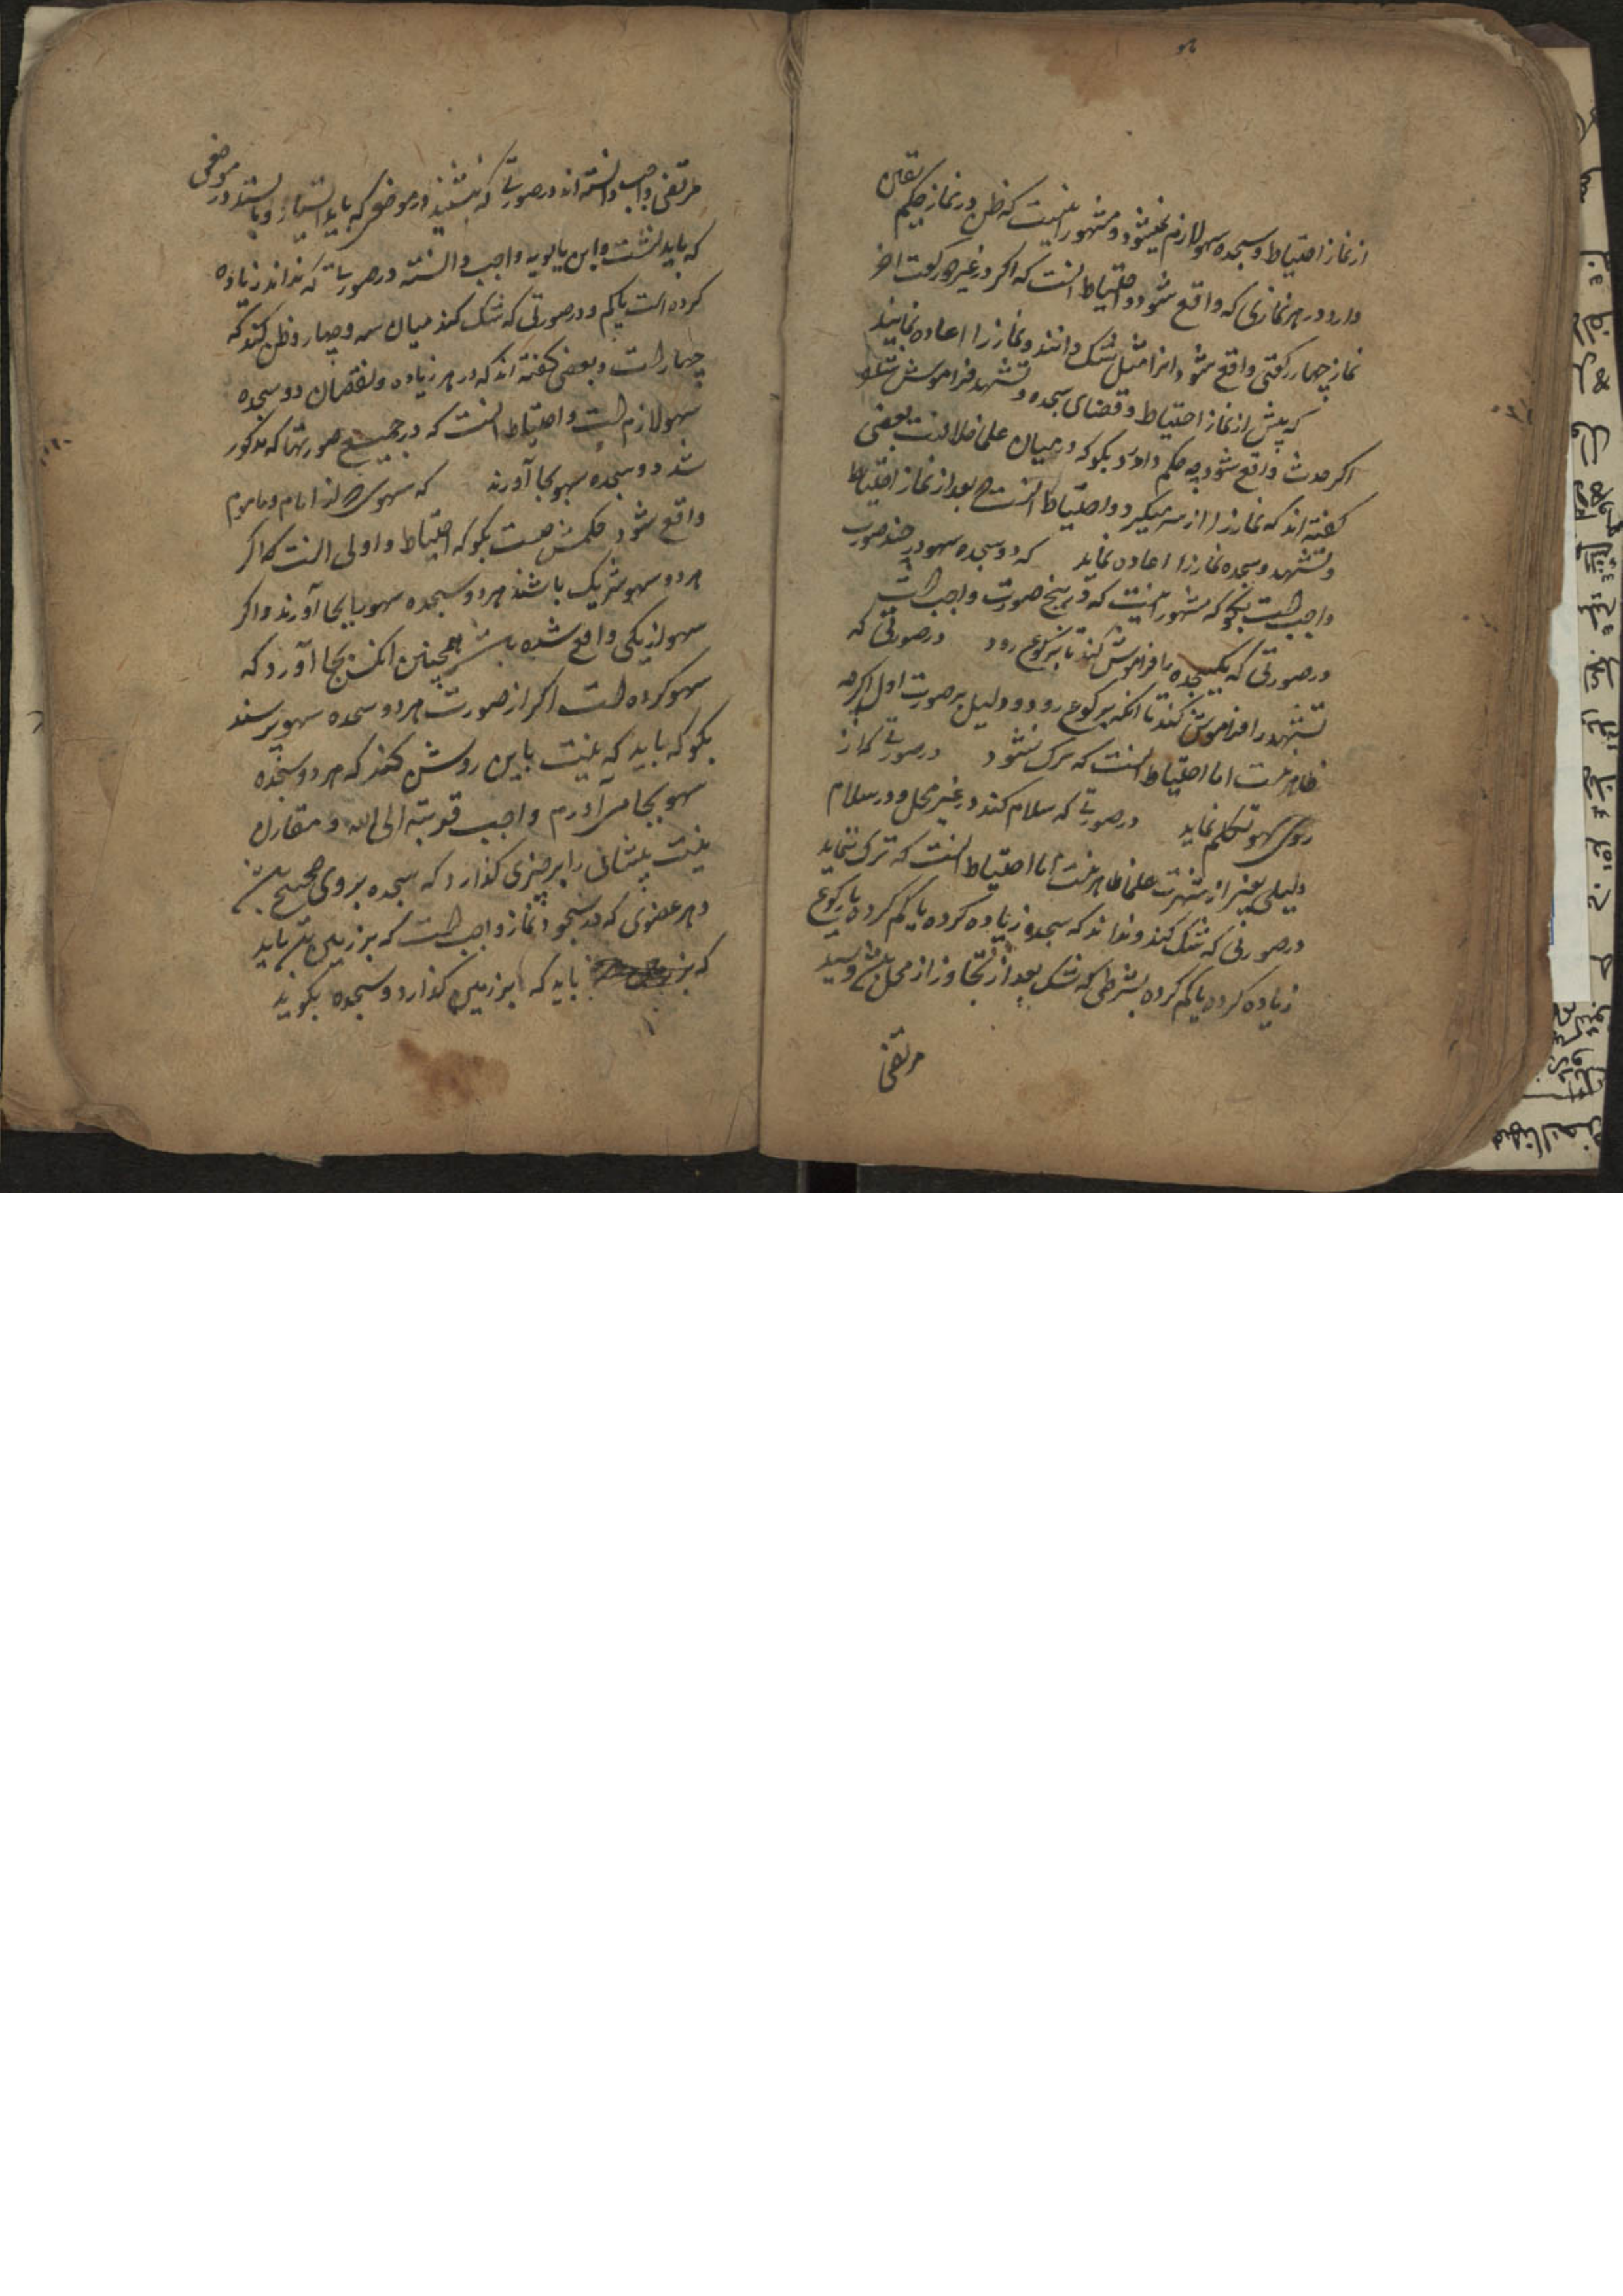 از نماز احتیاط و سجده سهو لازم نمیشود و مشهور اینست که ظن در نماز حکم یقین
دارد در هر نمازی که واقع شود و احتیاط آنست که اگر در غیر دو رکعت آخر
نماز چهار رکعتی واقع شود انرا مثل شک دانند و نماز را اعاده نمایند
که پیش از نماز احتیاط و قضای سجده و تشهد فراموش شده
اگر حدث واقع شود چه حکم دارد بگو که در میان علما خلافست بعضی
گفته اند که نماز را از سر میگیرد و احتیاط آنست که بعد از نماز احتیاط
و تشهد و سجده نماز را اعاده نماید که دو سجده سهو در چند صورت
واجب است بگو که مشهور اینست که در پنج صورت واجب است
در صورتی که یکسجده را فراموش کند تا برکوع رود در صورتی که
تشهد را فراموش کند تا انکه برکوع رود و دلیل بر صورت اول اگرچه
ظاهر نیست اما احتیاط آنست که ترک نشود در صورتی که از
روی سهو تکلم نماید در صورتی که سلام کند در غیر محل و در سلام
دلیلی بغیر از شهرت علما ظاهر نیست اما احتیاط آنست که ترک ننماید
در صورتی که شک کند و نداند که سجده زیاده کرده یا کم کرده یا رکوع
زیاده کرده یا کم کرده بشرطی که شک بعد از تجاوز از محل باشد و سید
مرتضی
مرتضی واجب دانسته اند در صورتی که بنشیند در موضعی که باید ایستاد و بایستد در موضعی
که باید نشست و ابن بابویه واجب دانسته در صورتی که نداند زیاده
کرده است یا کم و در صورتی که شک کند میان سه و چهار و ظن کند که
چهار است و بعضی گفته اند که در هر زیاده و نقصان دو سجده
سهو لازم است و احتیاط آنست که در جمیع صورتها که مذکور
شد دو سجده سهو بجا آورند که سهوی که از امام و ماموم
واقع شود حکمش چیست بگو که احتیاط و اولی آنست که اگر
هر دو سهو شریک باشند هر دو سجده سهو بجا آورند و اگر
سهو از یکی واقع شده باشد همچنین آنکس بجا آورد که
سهو کرده است اگر از صورت هر دو سجده سهو پرسند
بگو که باید که نیت باین روش کند که هر دو سجده
سهو بجا می آورم واجب قربة الی الله و مقارن
نیت پیشانی را بر چیزی گذارد که سجده بروی صحیح باشد
و هر عضوی که در سجود نماز واجب است که بر زمین باید
که بر باید که بر زمین گذارد و سجده بگوید